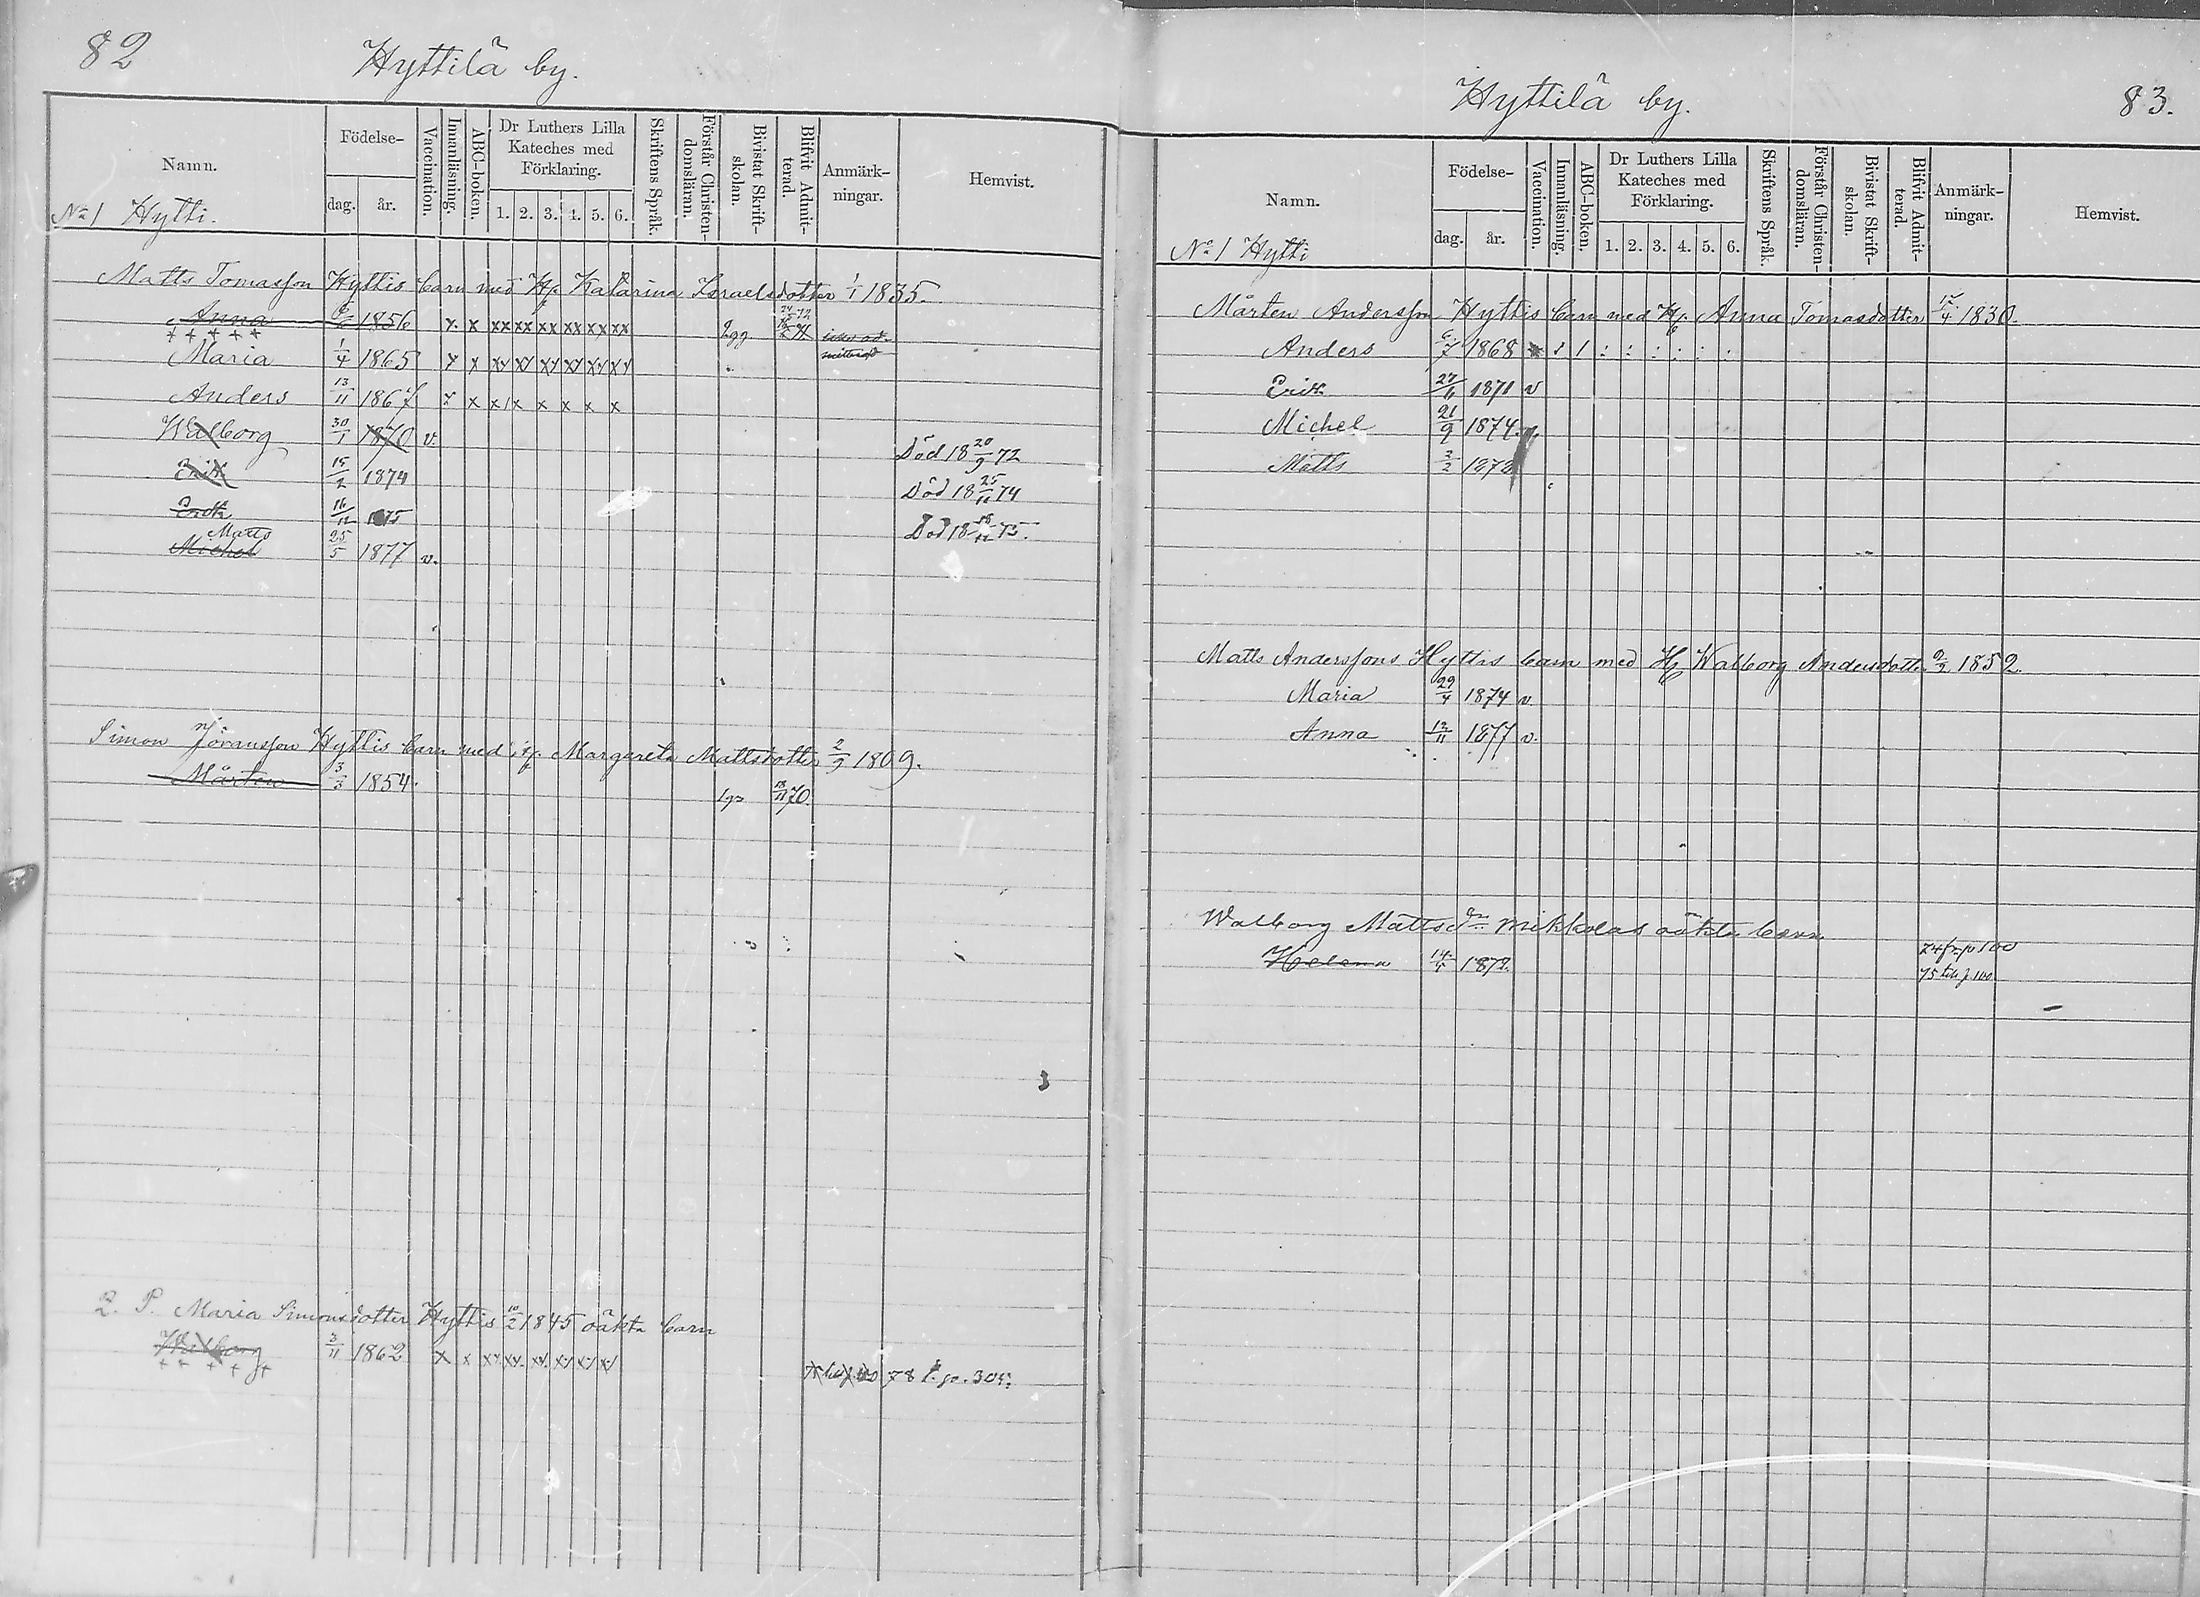 82
Hyttilä by.
Namn.
Födelse-
dag. år.
Vaccination.
Innanläsning.
ABC-boken.
Dr Luthers Lilla Kateches med Förklaring.
1. 2. 3. 4. 5. 6.
Skriftens Språk.
Förstår Christen-domsläran.
Bivistat Skrift-skolan.
Blifvit Admit-terad.
Anmärk-ningar.
Hemvist.
No 1 Hytti.
Matts Tomasson Hyttis barn med H. Katarina Israelsdotter 1/1 1835.
Anna 1856 x x xx xx xx xx xx xx
Maria 1/4 1865 x x xx xx xx xx xx xx
Anders 13/11 1867 x x x x x x x x
Walborg 30/1 1870 v. Död 18 20/9 72
Erik 15/2 1874 Död 18 25/11 74
Erik 16/12 1875 Död 18 75.
Matts
Michel 25/5 1877 v.
Simon Jöransson Hyttis barn med Margareta Mattsdotter 2/9 1809.
Mårten 3/3 1854. 18/11 70
2. P. Maria Simonsdotter Hyttis 10/2 1845 oäkta barn
Walborg 3/11 1862 x x xx xx xx xx xx xx 78
83.
Hyttilä by.
Namn.
Födelse-
dag. år.
Vaccination.
Innanläsning.
ABC-boken.
Dr Luthers Lilla Kateches med Förklaring.
1. 2. 3. 4. 5. 6.
Skriftens Språk.
Förstår Christen-domsläran.
Bivistat Skrift-skolan.
Blifvit Admit-terad.
Anmärk-ningar.
Hemvist.
No 1 Hytti
Mårten Andersson Hyttis barn med H. Anna Tomasdotter 1830.
Anders 6/7 1868
Erik 27/6 1871 v
Michel 21/9 1874
Matts 3/2
Matts Anderssons Hyttis barn med H. Walborg Andersdotter 1852.
Maria 29/4 1874 v.
Anna 12/11 1877 v.
Walborg Mattsdr Mikkolas oäkta barn
Helena 187